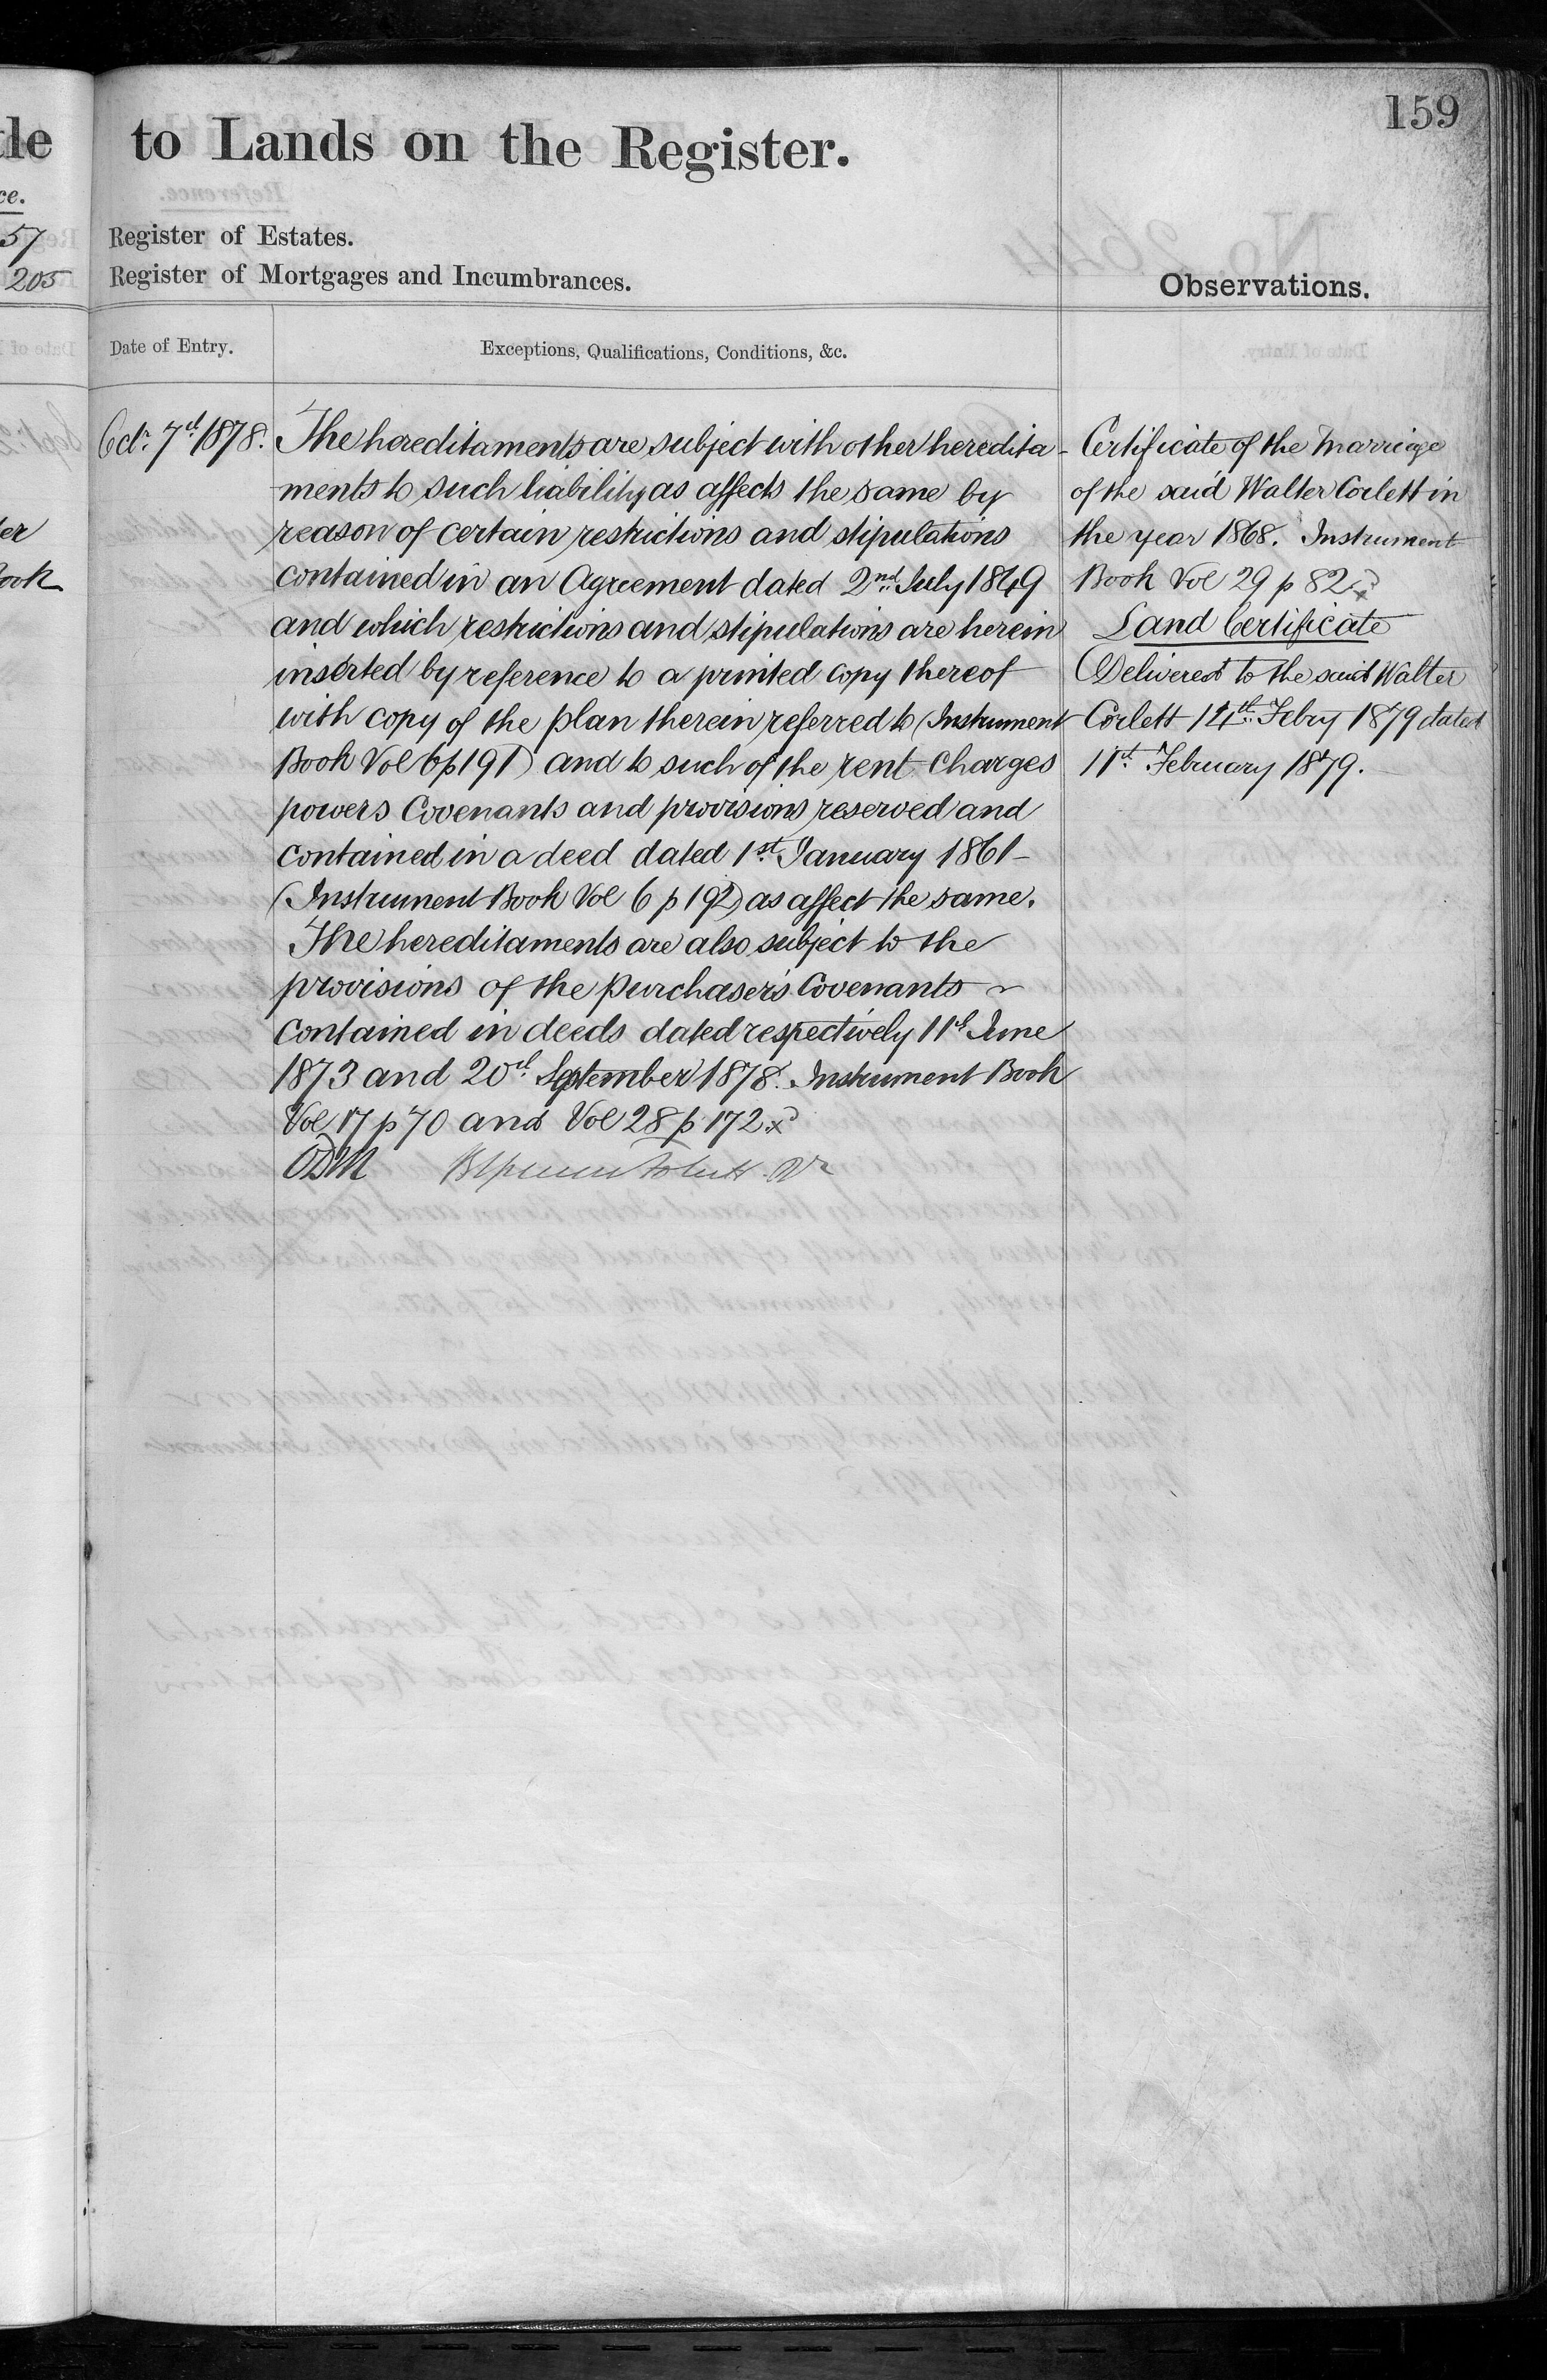 159
to Lands on the Register.
57
Register of Estates.
205
Register of Mortgages and Incumbrances.
Observations.
Date of Entry.
Exceptions, Qualifications, Conditions, &c.
Octr. 7th 1878.
The hereditaments are subject with other heredita-
ments to such liability as affects the same by
reason of certain restrictions and stipulations
contained in an Agreement dated 2nd July 1849
and which restrictions and stipulations are herein
inserted by reference to a printed copy thereof
with copy of the plan therein referred to (Instrument
Book Vol 6 p 191) and to such of the rent charges
powers Covenants and provisions reserved and
contained in a deed dated 1st January 1861-
(Instrument Book Vol 6 p 192) as affect the same.
The hereditaments are also subject to the
provisions of the purchasers Covenants
contained in deeds dated respectively 11th June
1873 and 20th September 1878. Instrument Book
Vol 17 p 70 and Vol 28 p 172
Certificate of the Marriage
of the said Walter Corlett in
the year 1868. Instrument
Book Vol 29 p 82
Land Certificate
Delivered to the said Walter
Corlett 14th Febry 1879 dated
11th February 1879.